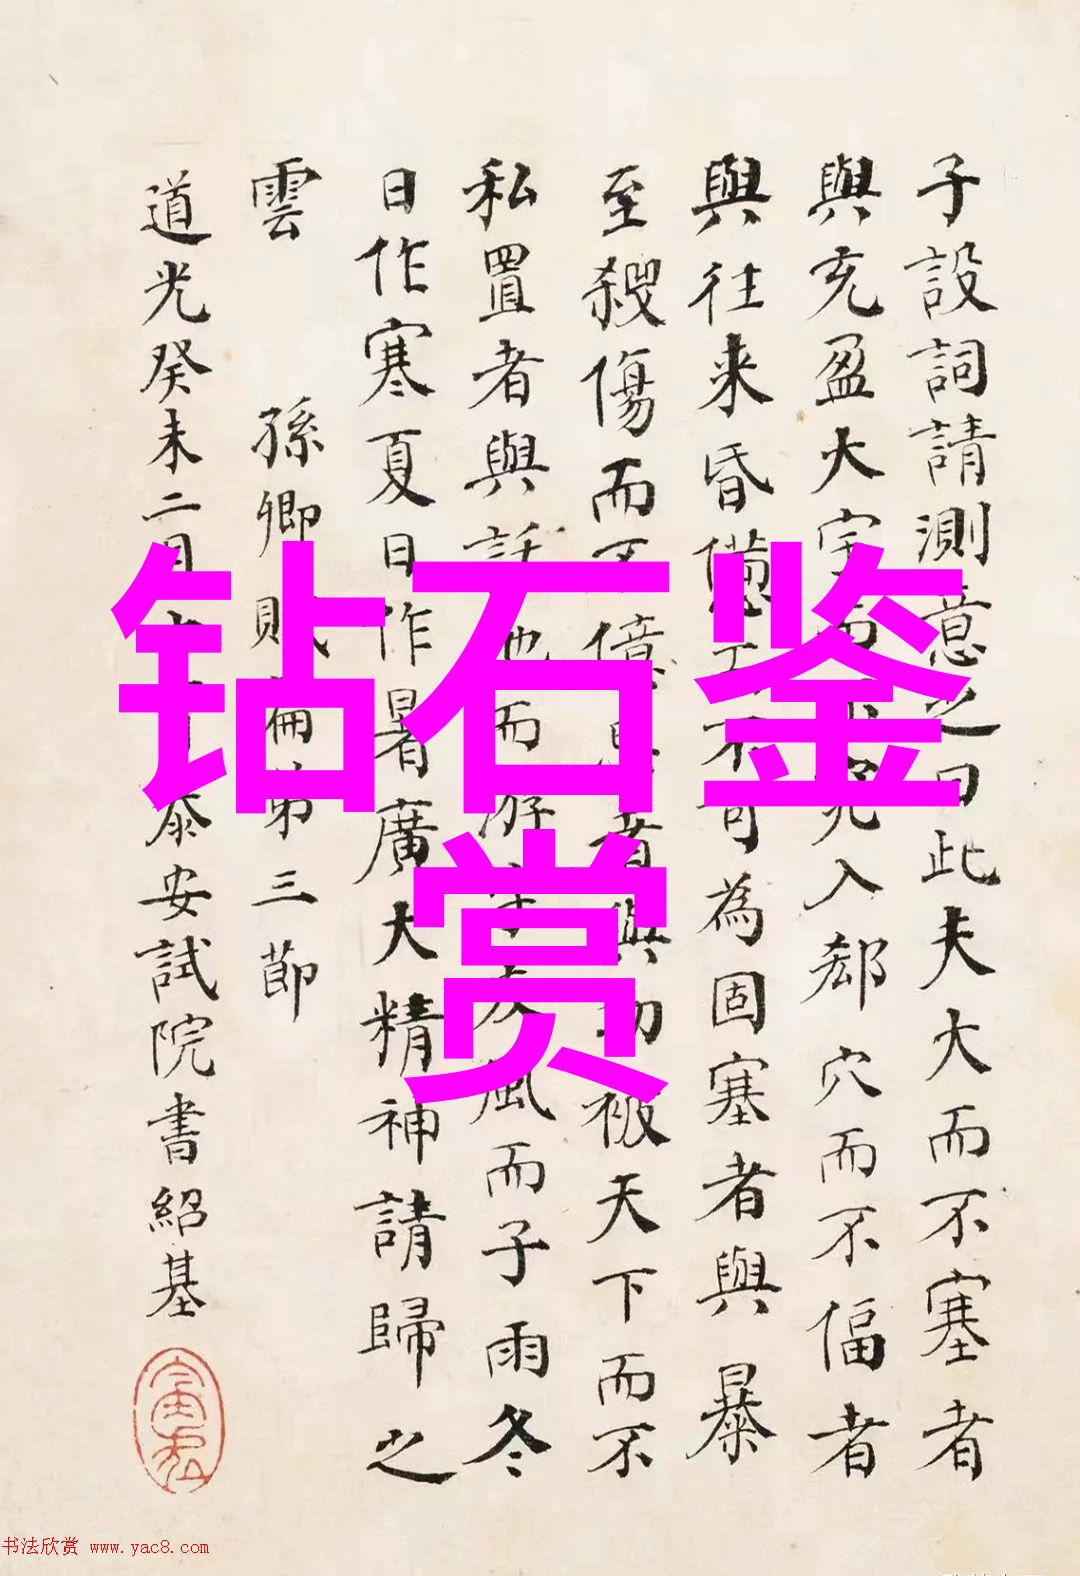 子設詞請測意之曰此夫大而不塞者
與充盈大宇而不窕入郄穴而不偪者
與往来昏憊而不可為固塞者與暴
至殺傷而不億忌者與功被天下而不
私置者與託地而游宇友風而子雨冬
日作寒夏日作暑廣大精神請歸之
雲
孫卿賦篇第三節
道光癸未二月 泰安試院書紹基
钻石鉴
赏
书法欣赏 www.yac8.com